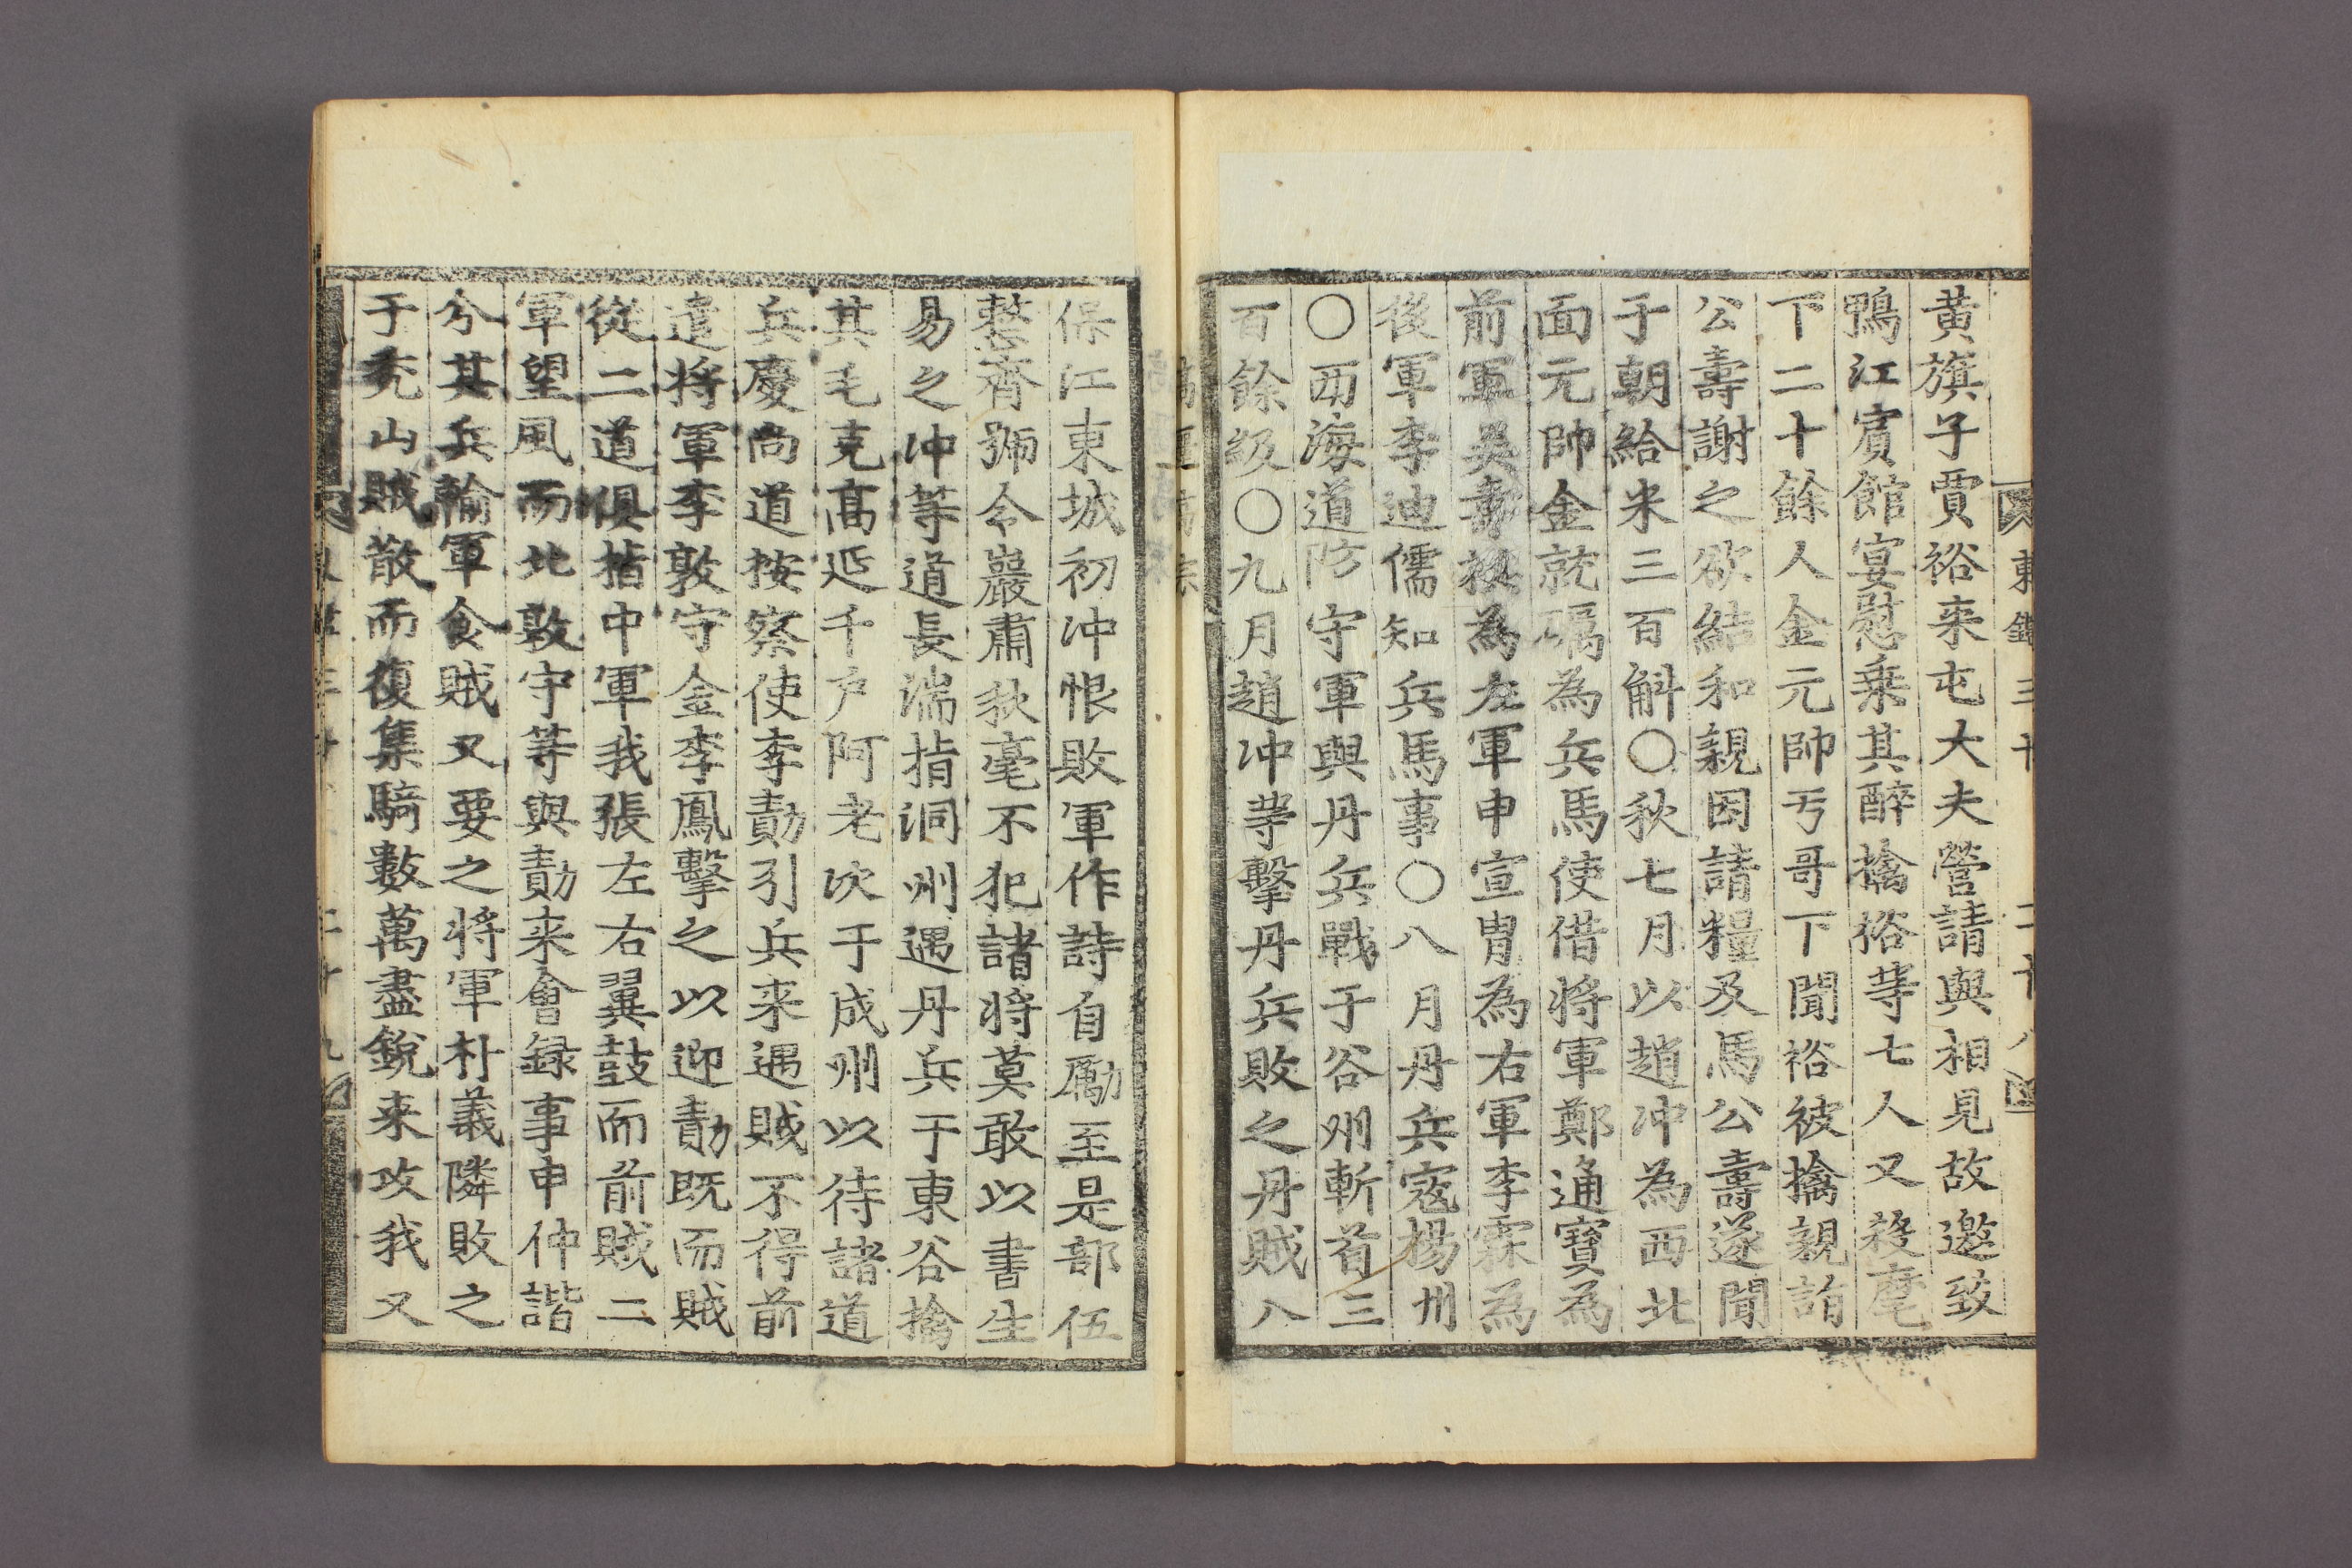 黃旗子賈裕来屯大夫營請與相見故邀致
鴨江賓館宴慰乗其醉擒裕等七人又殺麾
下二十餘人金元帥亐哥下聞裕被擒親詣
公壽謝之欲結和親因請糧及馬公壽遂聞
于朝給米三百斛〇秋七月以趙冲為西北
面元帥金就礪為兵馬使借将軍鄭通寶為
前軍吳壽祺為左軍申宣冑為右軍李霖為
後軍李迪儒知兵馬事〇八月丹兵寇楊州
〇西海道防守軍與丹兵戰于谷州斬首三
百餘級〇九月趙冲等擊丹兵敗之丹賊八
保江東城初冲恨敗軍作詩自勵至是部伍
整齊號令嚴肅秋毫不犯諸将莫敢以書生
易之冲等道長湍指洞州遇丹兵于東谷擒
其毛克高延千户阿老次于成州以待諸道
兵慶尚道按察使李勣引兵来遇賊不得前
遣将軍李敦守金季鳳擊之以迎勣既而賊
從二道俱指中軍我張左右翼鼓而前賊二
軍望風而北敦守等與勣来會録事申仲諧
兮其兵輸軍食賊又要之将軍朴義隣敗之
于禿山賊散而復集騎數萬盡銳来攻我又